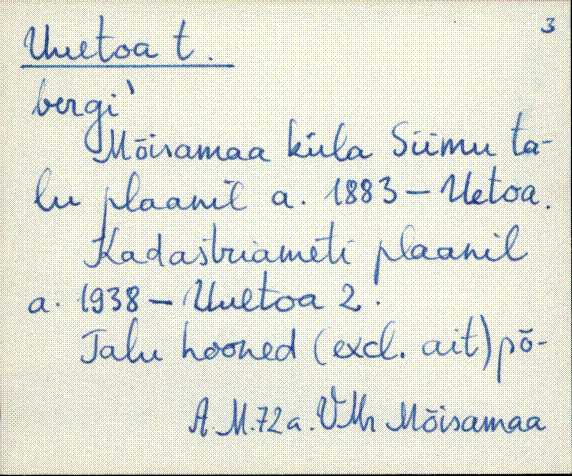 3
Uuetoa t.
bergi'
Mõisamaa küla Siimu ta-
lu plaanil a. 1883 – Uetoa.
Kadastriameti plaanil
a. 1938 – Uuetoa 2.
Talu hooned (excl. ait) põ-
A.M. 72 a. VMr Mõisamaa